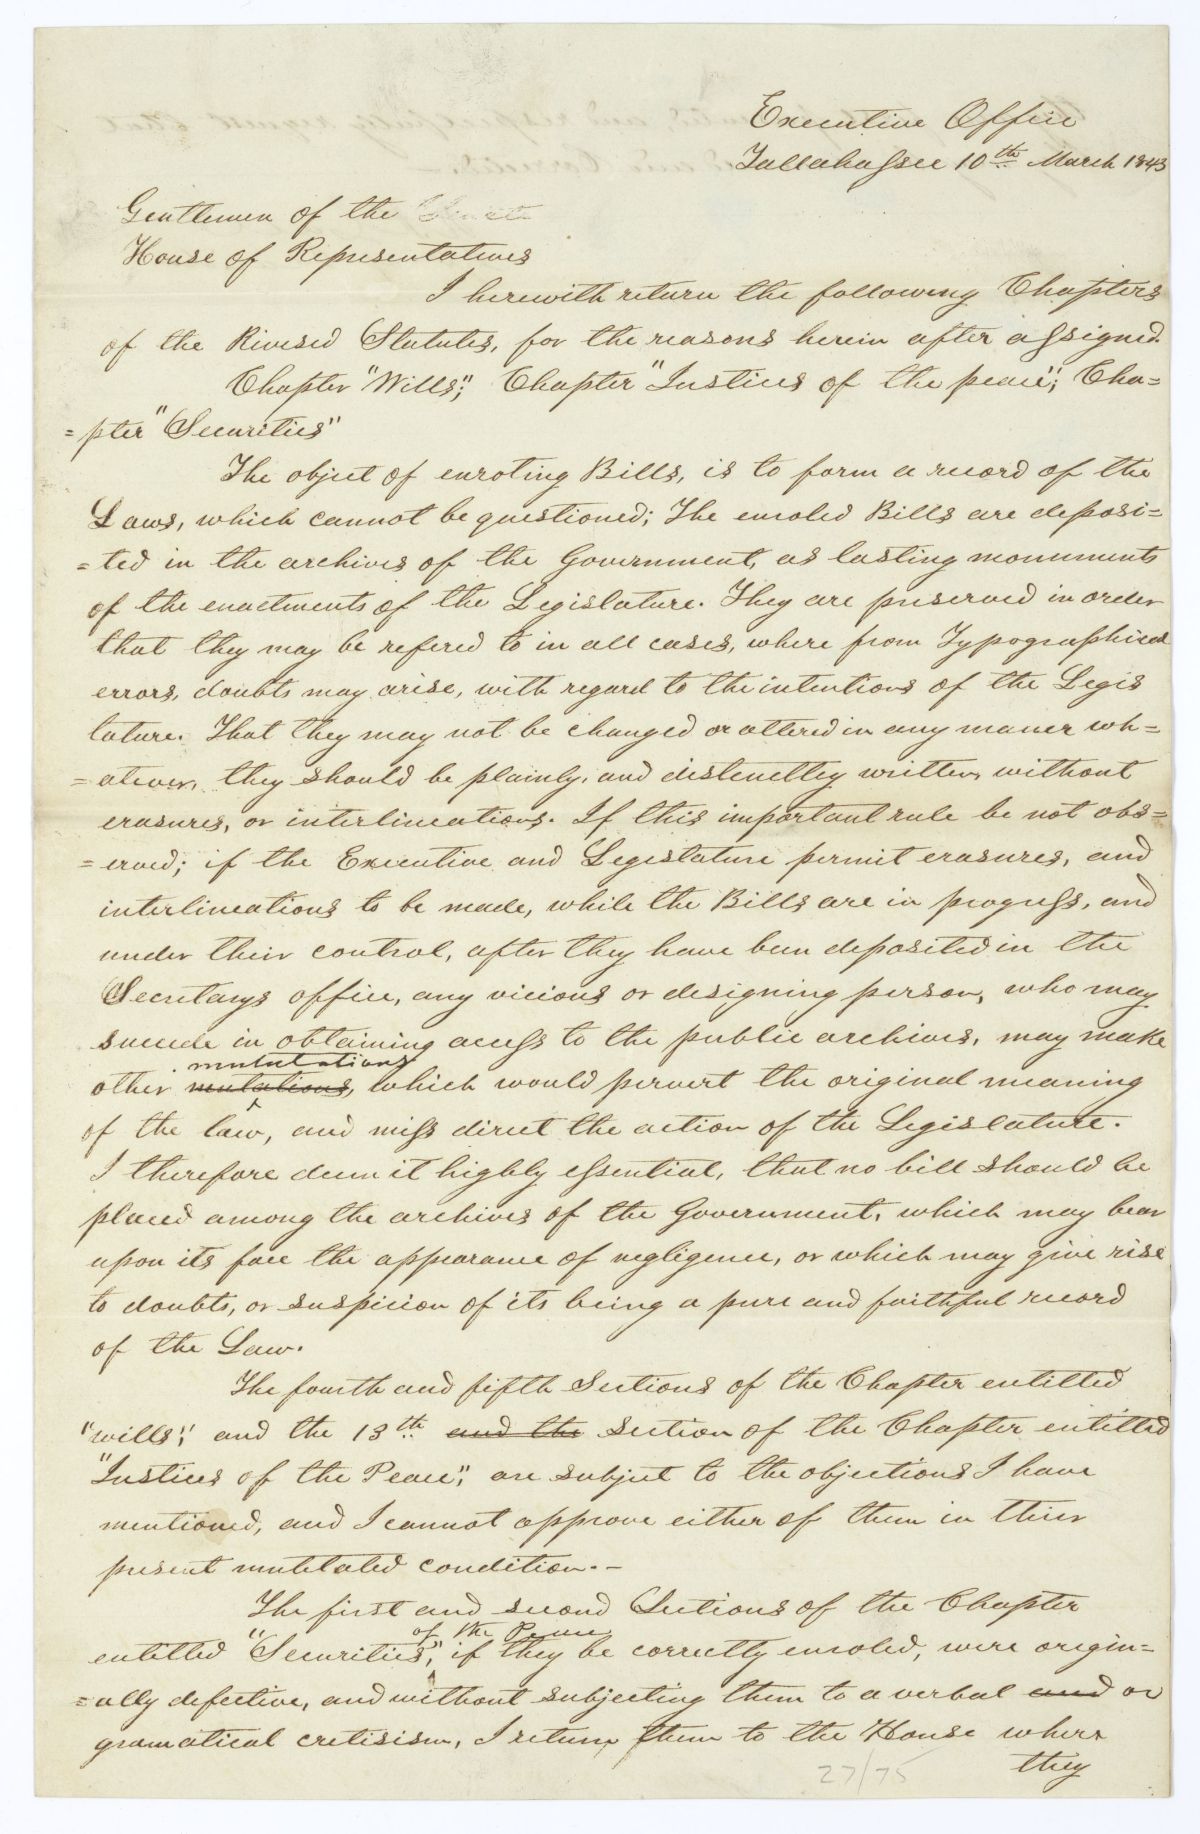 Executive Office
Tallahassee 10th March 1843
Gentlemen of the Senate
House of Representatives
I herewith return the following Chapters
of the Rivised Statutes, for the reasons herein after assigned.
Chapter "Wills"; Chapter "Justices of the peace"; Cha=
=pter "Securities"
The object of enroling Bills, is to form a record of the
Laws, which cannot be questioned; The enroled Bills are deposi=
=ted in the archives of the Government, as lasting monuments
of the enactments of the Legislature. They are preserved in order
that they may be refered to in all cases, where from Typographical
errors, doubts may arise, with regard to the intentions of the Legis
lature. That they may not be changed or altered in any maner wh=
=atever, they should be plainly, and distinctly written, without
erasures, or interlineations. If this important rule be not obs=
=erved; if the Executive and Legislature permit erasures, and
interlineations to be made, while the Bills are in progress, and
under their control, after they have been deposited in the
Secretarys office, any vicious or designing person, who may
succede in obtaining access to the public archives, may make
mutulations
other mutations, which would pervert the original meaning
of the law, and miss direct the action of the Legislature.
I therefore deem it highly essential, that no bill should be
placed among the archives of the Government, which may bear
upon its face the appearance of negligence, or which may give rise
to doubts, or suspicion of its being a pure and faithful record
of the Law.
The fourth and fifth Sections of the Chapter entitled
"wills", and the 13th and the section of the Chapter entitled
"Justices of the Peace", are subject to the objections I have
mentioned, and I cannot approve either of them in their
present mutilated condition.-
The first and second Sections of the Chapter
of the Peace
entitled "Securities", if they be correctly enroled, were origin=
=ally defective, and without subjecting them to a verbal and or
gramatical critisism, I return them to the House where
they
27/75